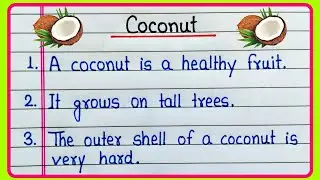 Coconut
1. A coconut is a healthy fruit.
2. It grows on tall trees.
3. The outer shell of a coconut is
very hard.